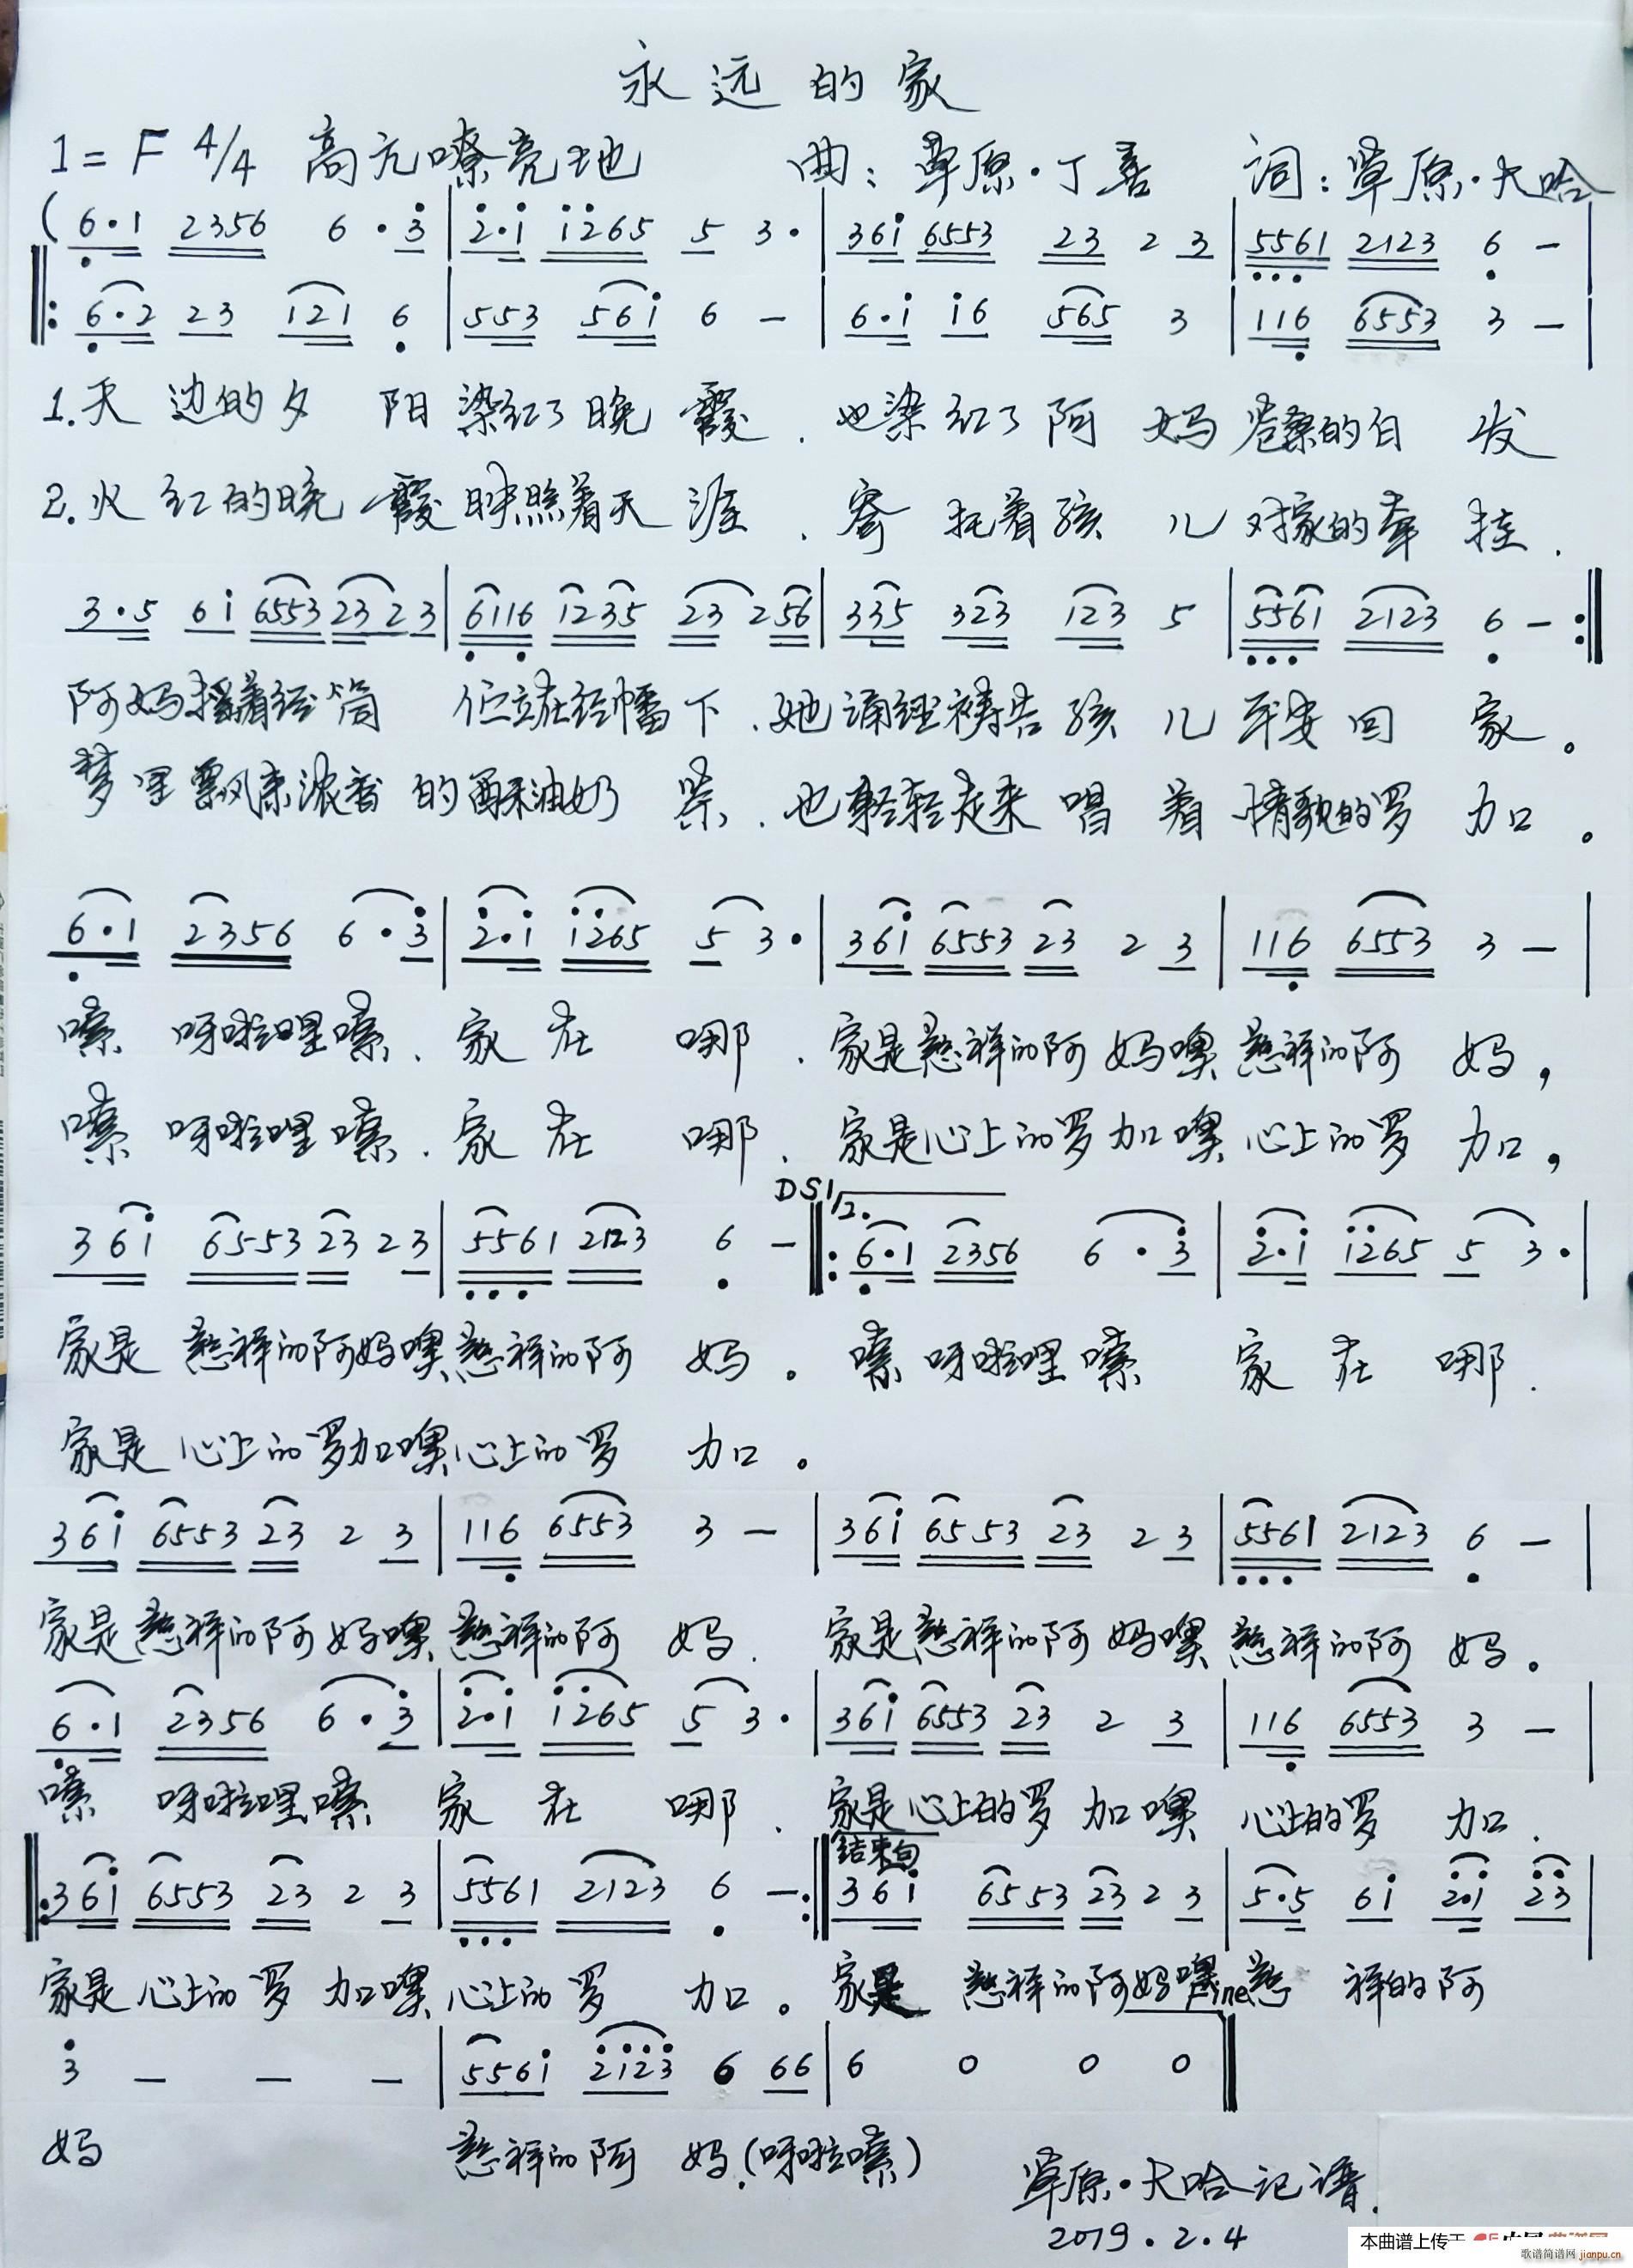 永远的家
1=F 4/4 高亢嘹亮地 曲：草原·丁喜 词：草原·大哈
(6·1 2356 6·3 | 2·1 1265 5 3· | 361 6553 23 2 3 | 5561 2123 6 - |
6·2 23 121 6 | 553 561 6 - | 6·1 16 565 3 | 116 6553 3 - |
1.天边的夕阳染红了晚霞．也染红了阿妈苍桑的白发
2.火红的晚霞映照着天涯．寄托着孩儿对家的牵挂．
3·5 61 6553 23 2 3 | 6116 1235 23 2 56 | 335 323 123 5 | 5561 2123 6 - :|
阿妈摇着经筒 伫立在经幡下．她诵经祷告孩儿平安回家。
梦里飘来浓香的酥油奶茶．也轻轻走来唱着情歌的罗加。
6·1 2356 6·3 | 2·1 1265 5 3· | 361 6553 23 2 3 | 116 6553 3 - |
嗦 呀啦哩嗦．家在哪．家是慈祥的阿妈噢慈祥的阿妈，
嗦 呀啦哩嗦．家在哪．家是心上的罗加噢心上的罗加，
DS1/2.
361 6553 23 2 3 | 5561 2123 6 - |: 6·1 2356 6·3 | 2·1 1265 5 3· |
家是慈祥的阿妈噢慈祥的阿妈。嗦呀啦哩嗦 家在哪．
家是心上的罗加噢心上的罗加。
361 6553 23 2 3 | 116 6553 3 - | 361 6553 23 2 3 | 5561 2123 6 - |
家是慈祥的阿妈噢慈祥的阿妈．家是慈祥的阿妈噢慈祥的阿妈。
6·1 2356 6·3 | 2·1 1265 5 3· | 361 6553 23 2 3 | 116 6553 3 - |
嗦 呀啦哩嗦 家在哪．家是心上的罗加噢心上的罗加．
结束句
|: 361 6553 23 2 3 | 5561 2123 6 - :| 361 6553 23 2 3 | 5·5 61 2·1 23 |
家是心上的罗加噢心上的罗加。家是慈祥的阿妈噢慈祥的阿
Fine
3 - - - | 5561 2123 6 66 | 6 0 0 0 ||
妈 慈祥的阿妈．(呀啦嗦)
草原·大哈记谱．
2019.2.4
本曲谱上传于
歌谱简谱网 jianpu.cn